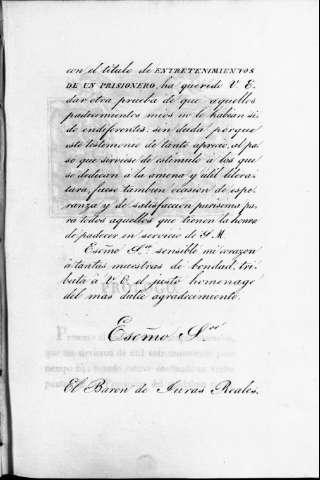 con el titulo de ENTRETENIMIENTOS
DE UN PRISIONERO, ha querido V. E.
dar otra prueba de que aquellos
padecimientos mios no le habian si-
do indiferentes: sin duda porque
este testimonio de tanto aprecio, al pa-
so que serviese de estimulo à los que
se dedican à la amena y util litera-
tura, fuese tambien ocasion de espe-
ranza y de satisfaccion purisima pa-
ra todos aquellos que tienen la honra
de padecer en servicio de S. M.
Escmo. S.or sensible mi corazon
à tantas muestras de bondad, tri-
buta à V. E. el justo homenage
del mas dulce agradecimiento.
Escmo S.or
El Baron de Juras Reales.